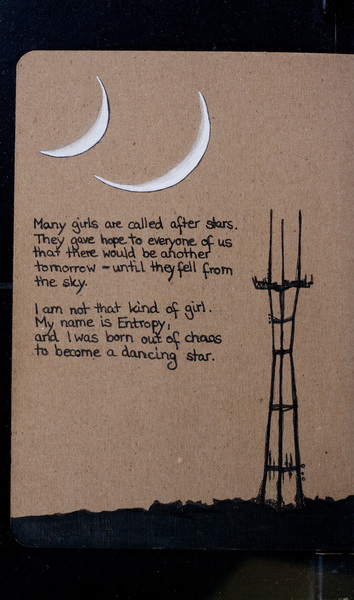 Many girls are called after stars.
They gave hope to everyone of us
that there would be another
tomorrow - until they fell from
the sky.
I am not that kind of girl.
My name is Entropy,
and I was born out of chaos
to become a dancing star.